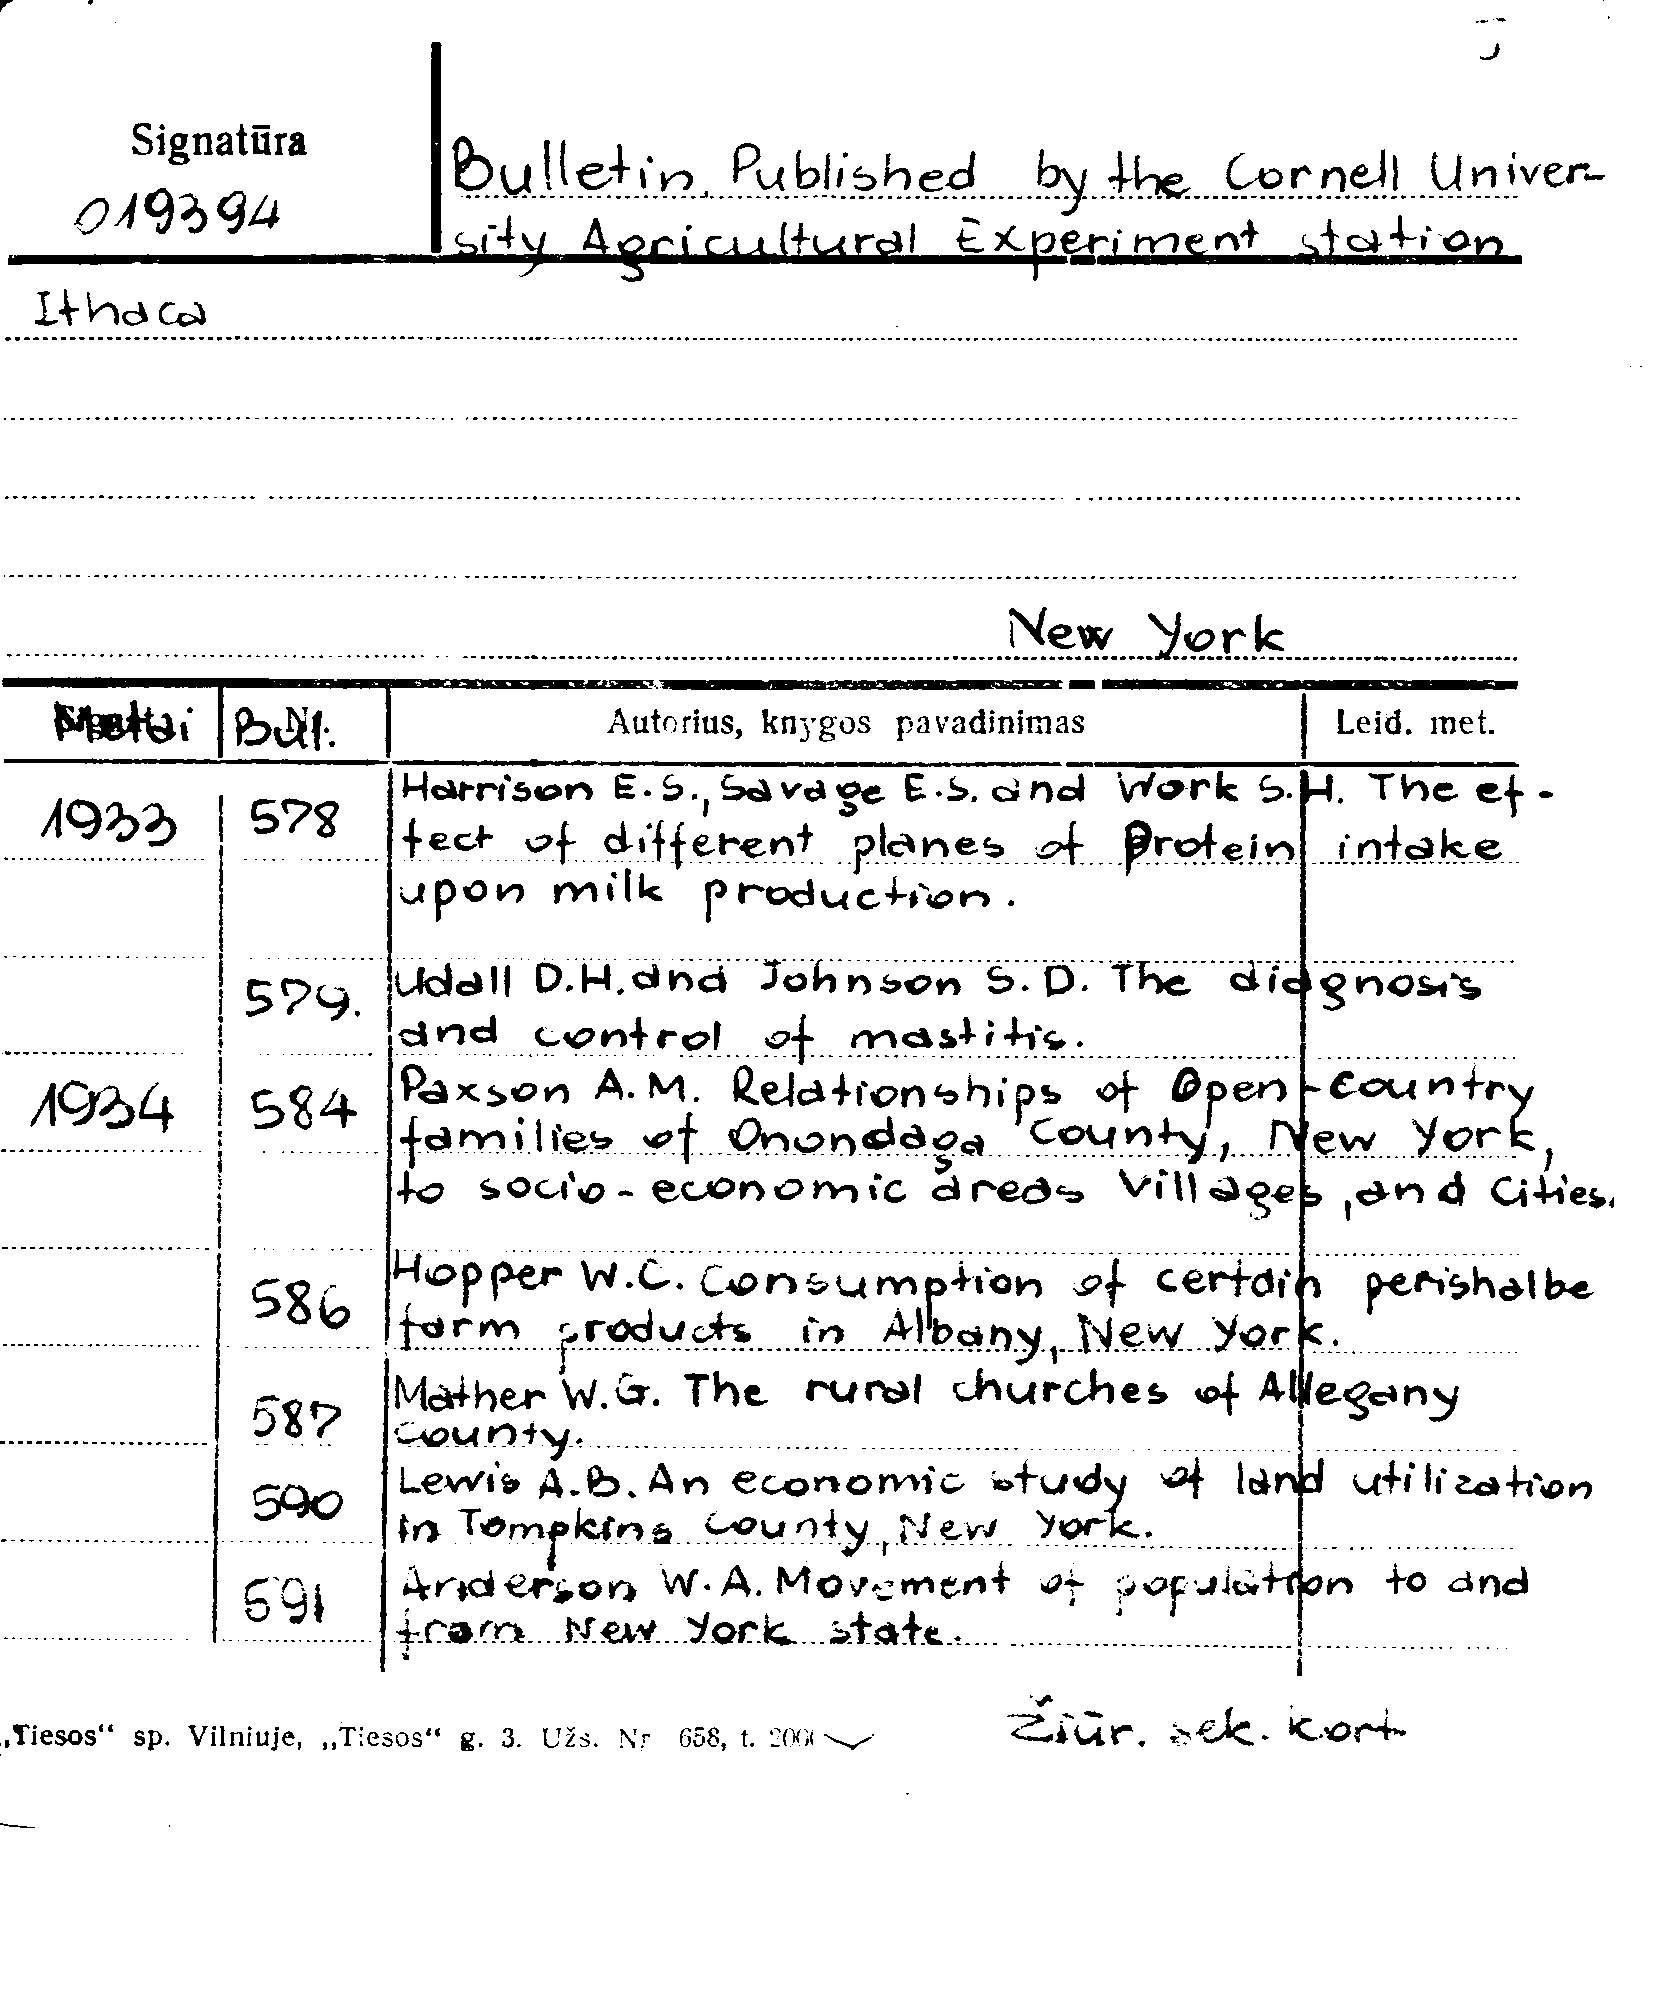 Signatūra
019394
Bulletin. Published by the Cornell Univer-
sity Agricultural Experiment station
Ithaca
New York
Metai Bul. Autorius, knygos pavadinimas Leid. met.
1933 578 Harrison E.S., Savage E.S. and Work S.H. The ef-
fect of different planes of Protein intake
upon milk production.
579. Udall D.H. and Johnson S.D. The diagnosis
and control of mastitis.
1934 584 Paxson A.M. Relationships of Open-country
families of Onondaga County, New York,
to socio-economic areas Villages, and Cities.
586 Hopper W.C. Consumption of certain perishalbe
farm products in Albany, New York.
587 Mather W.G. The rural churches of Allegany
county.
590 Lewis A.B. An economic study of land utilization
in Tompkins County, New York.
591 Anderson W.A. Movement of population to and
from New York state.
„Tiesos“ sp. Vilniuje, „Tiesos“ g. 3. Užs. Nr 658, t.
Žiūr. sek. kort